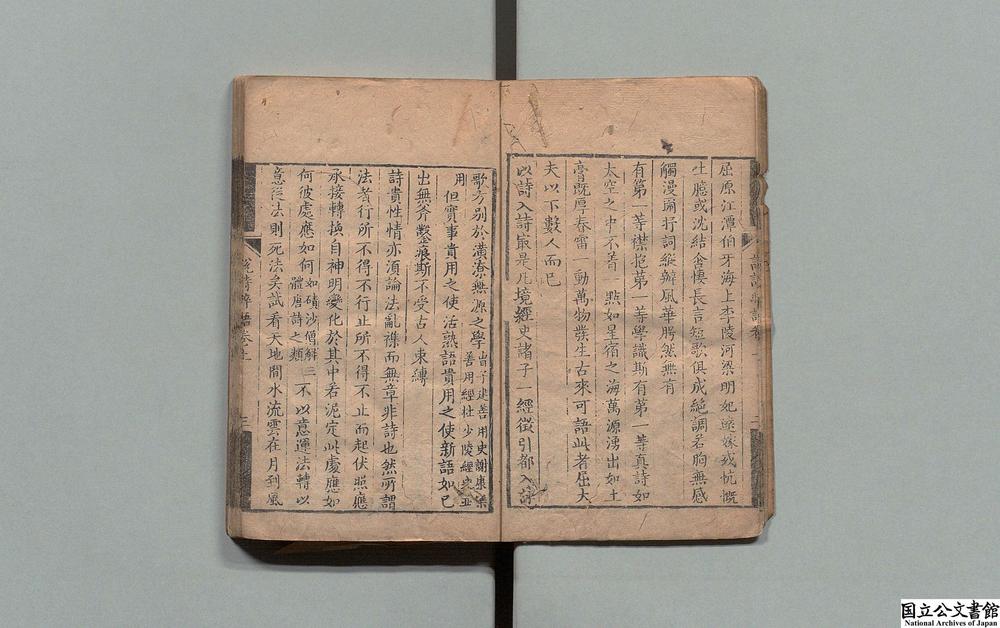 屈原江潭伯牙海上李陵河梁明妃遠嫁或忼慨
生臆或沈結含悽長言短歌俱成絕調若胸無感
觸漫爾抒詞縱辦風華腭然無有
有第一等襟抱第一等學識斯有第一等真詩如
太空之中不著一點如星宿之海萬源湧出如土
膏既厚春雷一動萬物發生古來可語此者屈大
夫以下數人而已
以詩入詩最是凡境經史諸子一經徵引都入詠
歌方別於潢潦無源之學曹子建善用史謝康樂善用經杜少陵經史並
用但實事貴用之使活熟語貴用之使新語如己
出無斧鑿痕斯不受古人束縛
詩貴性情亦須論法亂襍而無章非詩也然所謂
法者行所不得不行止所不得不止而起伏照應
承接轉換自神明變化於其中若泥定此處應如
何彼處應如何如磧沙僧解三體唐詩之類不以意運法轉以
意從法則死法矣試看天地間水流雲在月到風
說詩晬語卷上
三
国立公文書館
National Archives of Japan